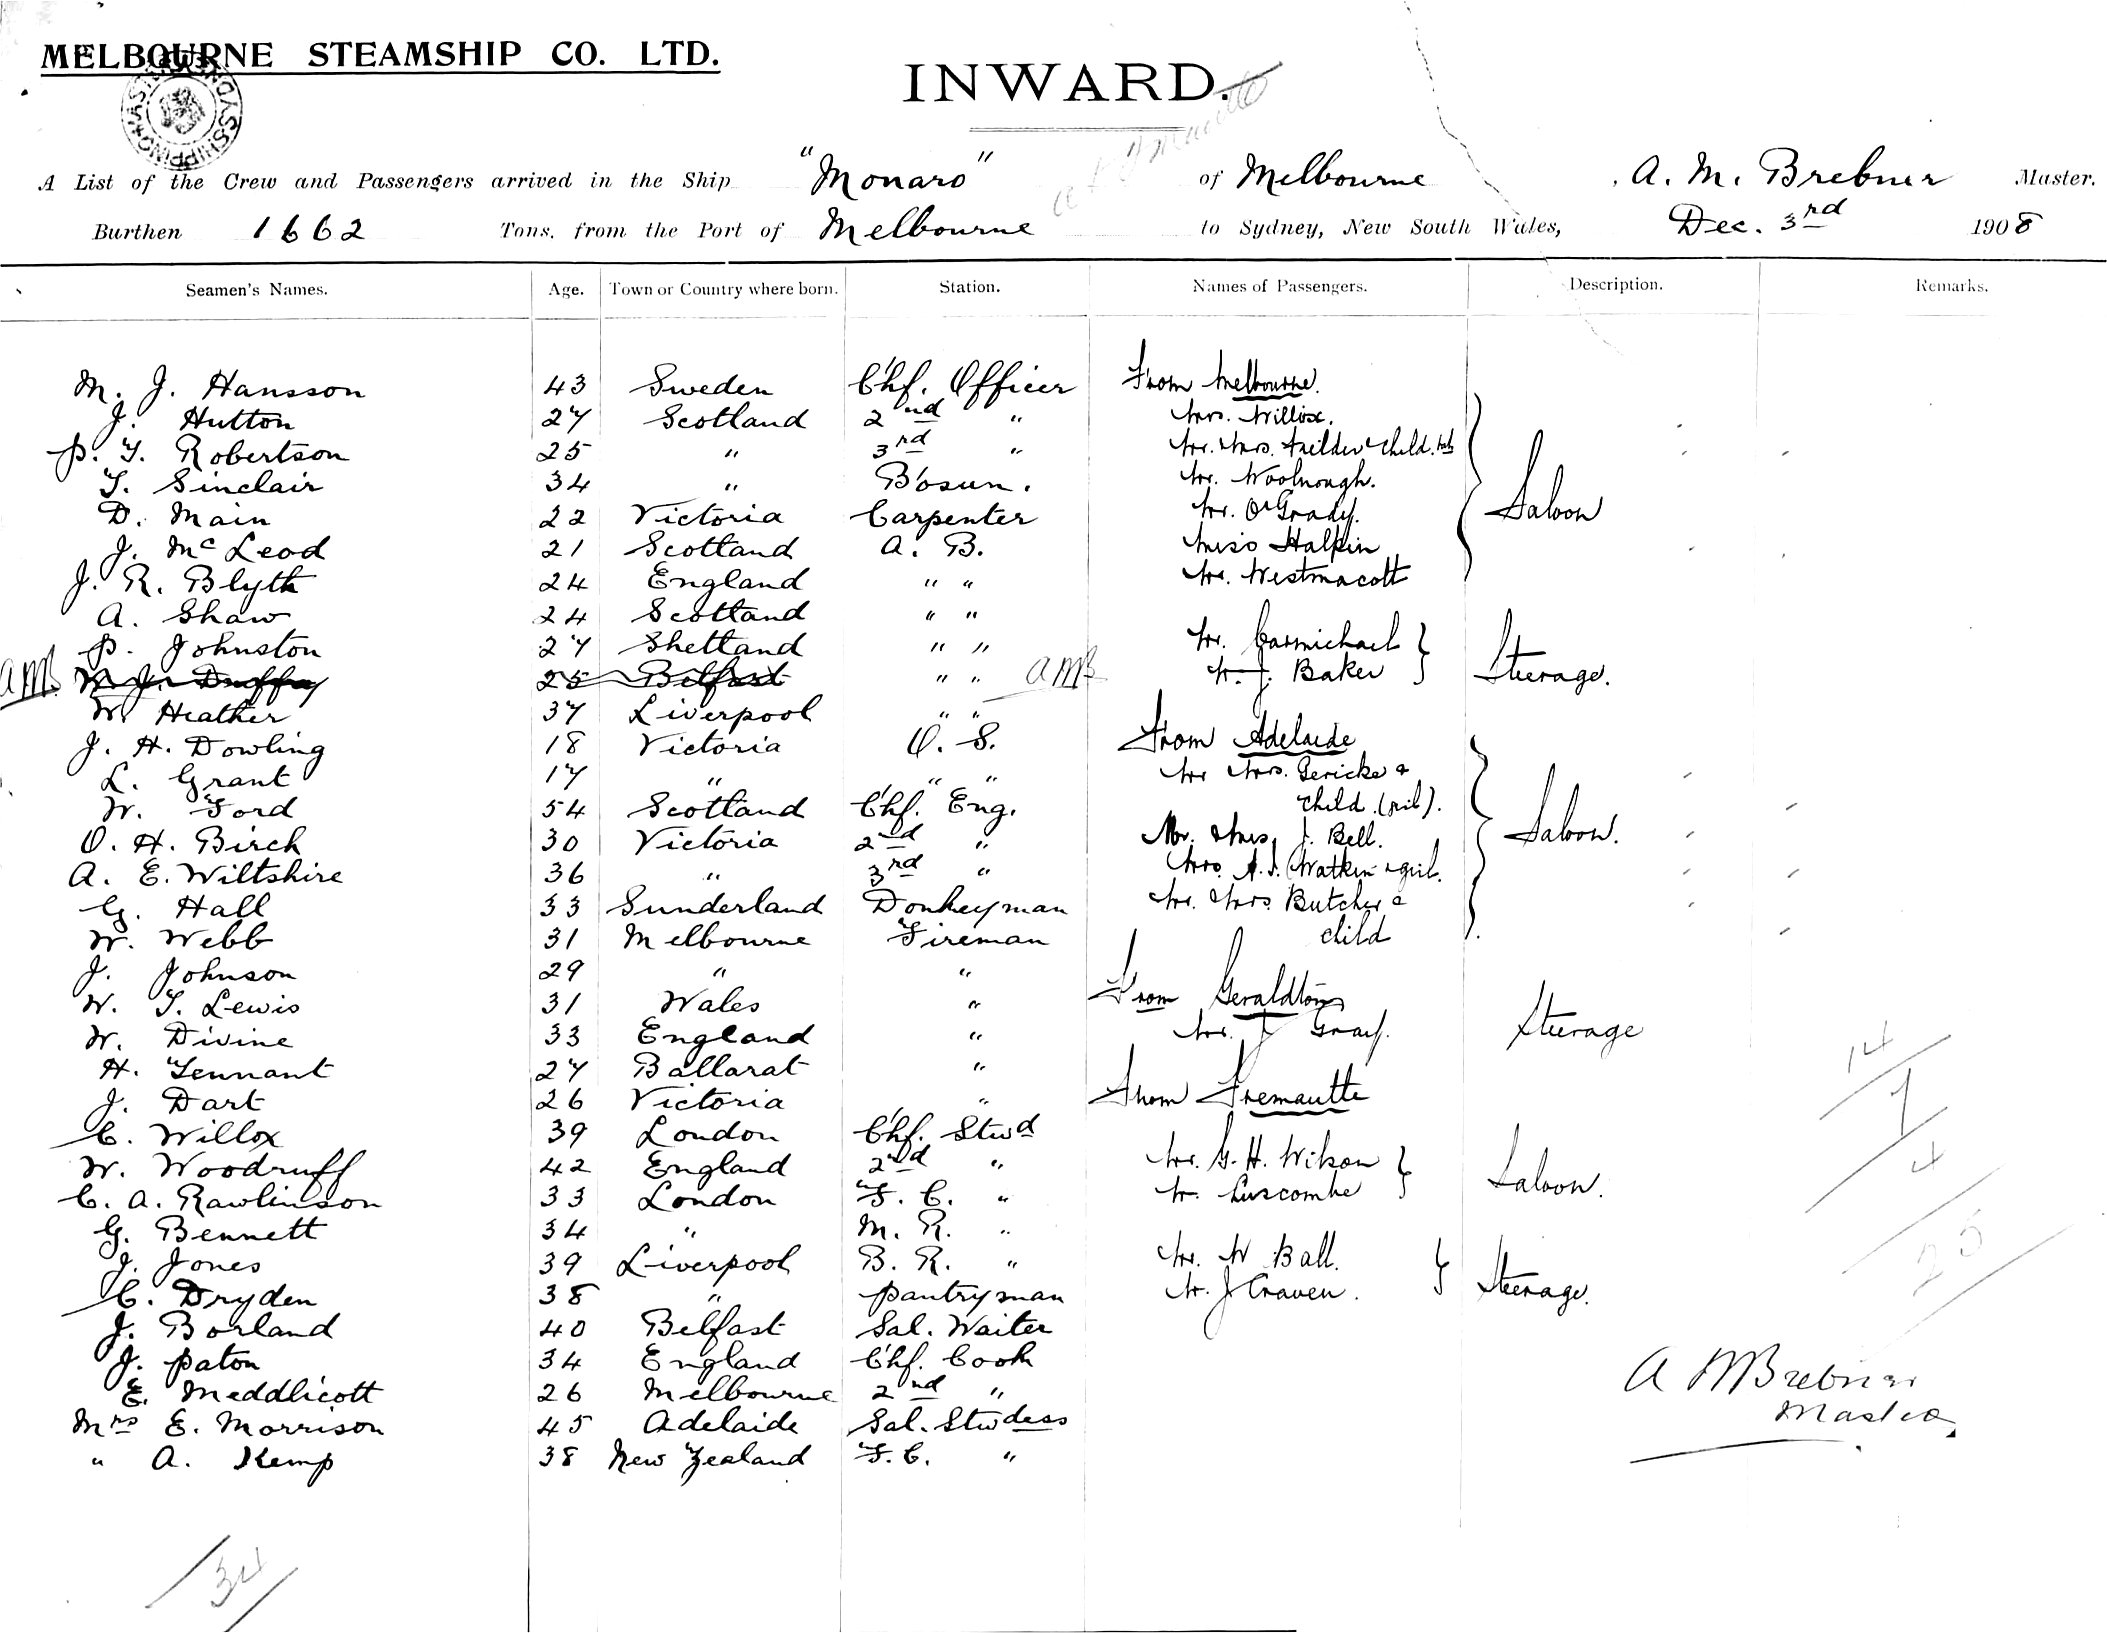 MELBOURNE STEAMSHIP CO. LTD.
INWARD.
A List of the Crew and Passengers arrived in the Ship "Monaro" of Melbourne, A. M. Brebner Master.
Burthen 1662 Tons, from the Port of Melbourne to Sydney, New South Wales, Dec. 3rd 1908
Seamen's Names. Age. Town or Country where born. Station. Names of Passengers. Description. Remarks.
M. J. Hansson 43 Sweden Chf. Officer
J. Hutton 27 Scotland 2nd "
P. T. Robertson 25 " 3rd "
T. Sinclair 34 " Bosun.
D. Main 22 Victoria Carpenter
J. McLeod 21 Scotland A. B.
J. R. Blyth 24 England " "
A. Shaw 24 Scotland " "
P. Johnston 27 Shetland " "
AMB W. J. Duffey 25 Belfast " " AMB
W. Heather 37 Liverpool " "
J. H. Dowling 18 Victoria O. S.
L. Grant 17 " " "
W. Ford 54 Scotland Chf. Eng.
O. H. Birch 30 Victoria 2nd "
A. E. Wiltshire 36 " 3rd "
G. Hall 33 Sunderland Donkeyman
W. Webb 31 Melbourne Fireman
J. Johnson 29 " "
W. T. Lewis 31 Wales "
W. Divine 33 England "
H. Tennant 27 Ballarat "
J. Dart 26 Victoria "
C. Willox 39 London Chf. Stwd
W. Woodruff 42 England 2nd "
C. A. Rawlinson 33 London F. C. "
G. Bennett 34 " M. R. "
J. Jones 39 Liverpool B. R. "
C. Dryden 38 " Pantryman
J. Borland 40 Belfast Sal. Waiter
J. Paton 34 England Chf. Cook
E. Meddlicott 26 Melbourne 2nd "
Mrs E. Morrison 45 Adelaide Sal. Stwdess
" A. Kemp 38 New Zealand F. C. "
34
From Melbourne.
Mrs. Willox.
Mr. Mrs. & Child.
Mr. Woolnough.
Mr. O'Grady.
Miss Halpin
Mr. Westmacott
Saloon
Mr. Carmichael
Mr. J. Baker
Steerage.
From Adelaide
Mr Mrs. Gericke &
child (girl).
Mr. & Mrs. J. Bell.
Mrs. A. J. Watkin & girl.
Mr. Mrs. Butcher &
child
Saloon.
From Geraldton
Mr. J Gray.
Steerage
From Fremantle
Mr. G. H. Wilson
Mr. Luscombe
Saloon.
Mr. W Ball.
Mr. J Craven.
Steerage.
14
7
4
25
A M Brebner
Master